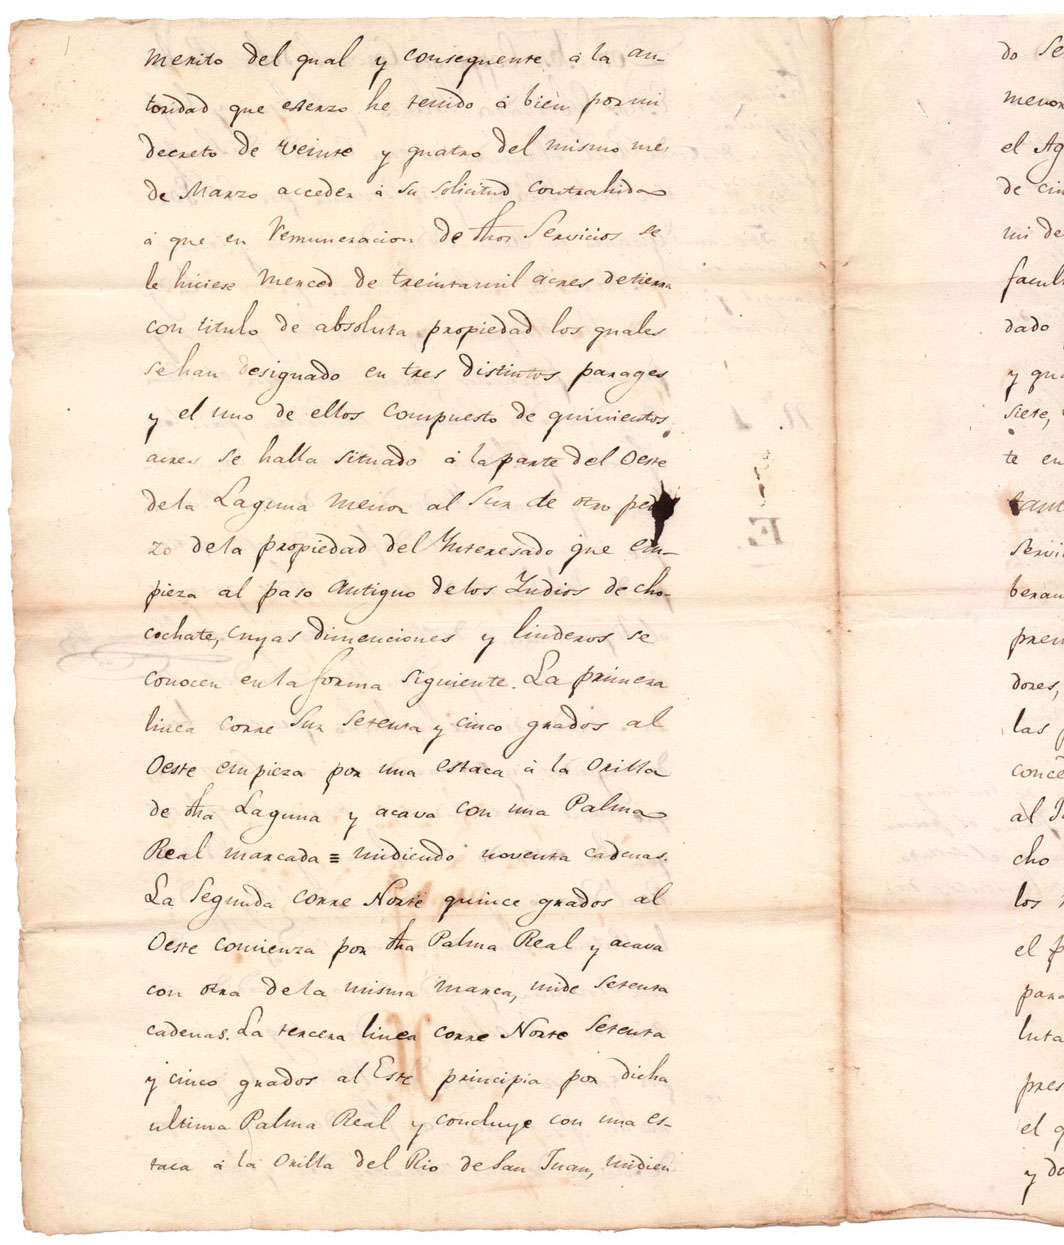 merito del qual y consequente á la au-
toridad que exerzo he tenido á bien por mi
decreto de veinte y quatro del mismo mes
de Marzo acceder á su solicitud contrahida
á que en remuneracion de dhos Servicios se
le hiciese merced de treinta mil acres de tierra
con titulo de absoluta propiedad los quales
se han designado en tres distintos parages
y el uno de ellos compuesto de quinientos
acres se halla situado á la parte del Oeste
de la Laguna menor al Sur de otro peda
zo de la propiedad del Ynteresado que em-
pieza al paso antiguo de los Yndios de cho-
cochate, cuyas dimenciones y linderos se
conocen en la forma siguiente. La primera
linea corre Sur setenta y cinco grados al
Oeste empieza por una estaca á la Orilla
de dha Laguna y acava con una Palma
Real marcada ≡ midiendo noventa cadenas.
La Segunda corre Norte quince grados al
Oeste comienza por dha Palma Real y acava
con otra de la misma marca, mide setenta
cadenas. La tercera linea corre Norte setenta
y cinco grados al Este principia por dicha
ultima Palma Real y concluye con una es-
taca á la Orilla del Rio de San Juan, midien
do Se
menor
el Ag
de cin
mi de
facul
dado
y qua
siete,
te en
tant
servi
beran
pren
dores,
las p
conce
al
cho
los
el p
para
luta
pres
el q
y do